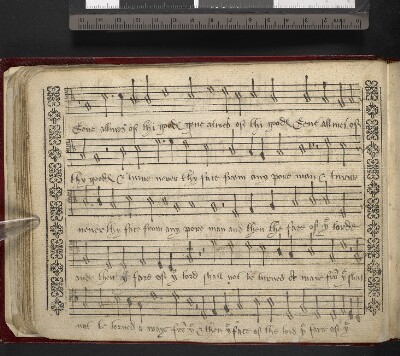 Geue allmes of thi goodes geue almes of thi goodes Geue allmes of
thy goodes & turne never thy face from any pore man & turne
never thy face from any pore man and then the face of yͤ lorde
and then yͤ face of yͤ lord shall not be turned awaye fro yͤ shal
not be torned a waye fro yͤ & then yͤ face of the lord yͤ face of yͤ